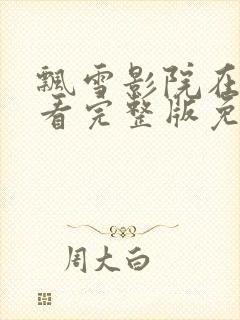 飘雪影院在
看完整版免
周大白